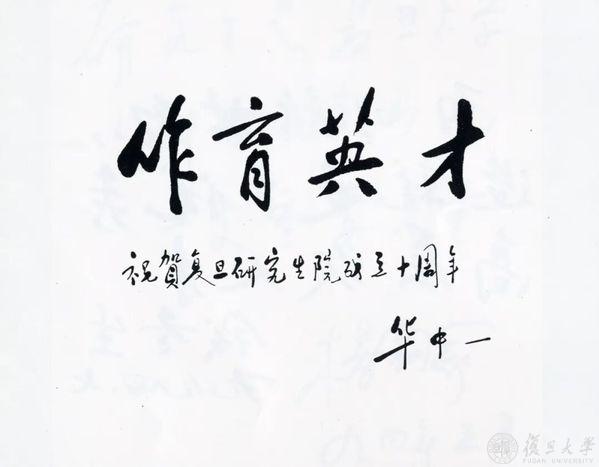 作育英才
祝贺复旦研究生院成立十周年
华中一
復旦大學
FUDAN UNIVERSITY